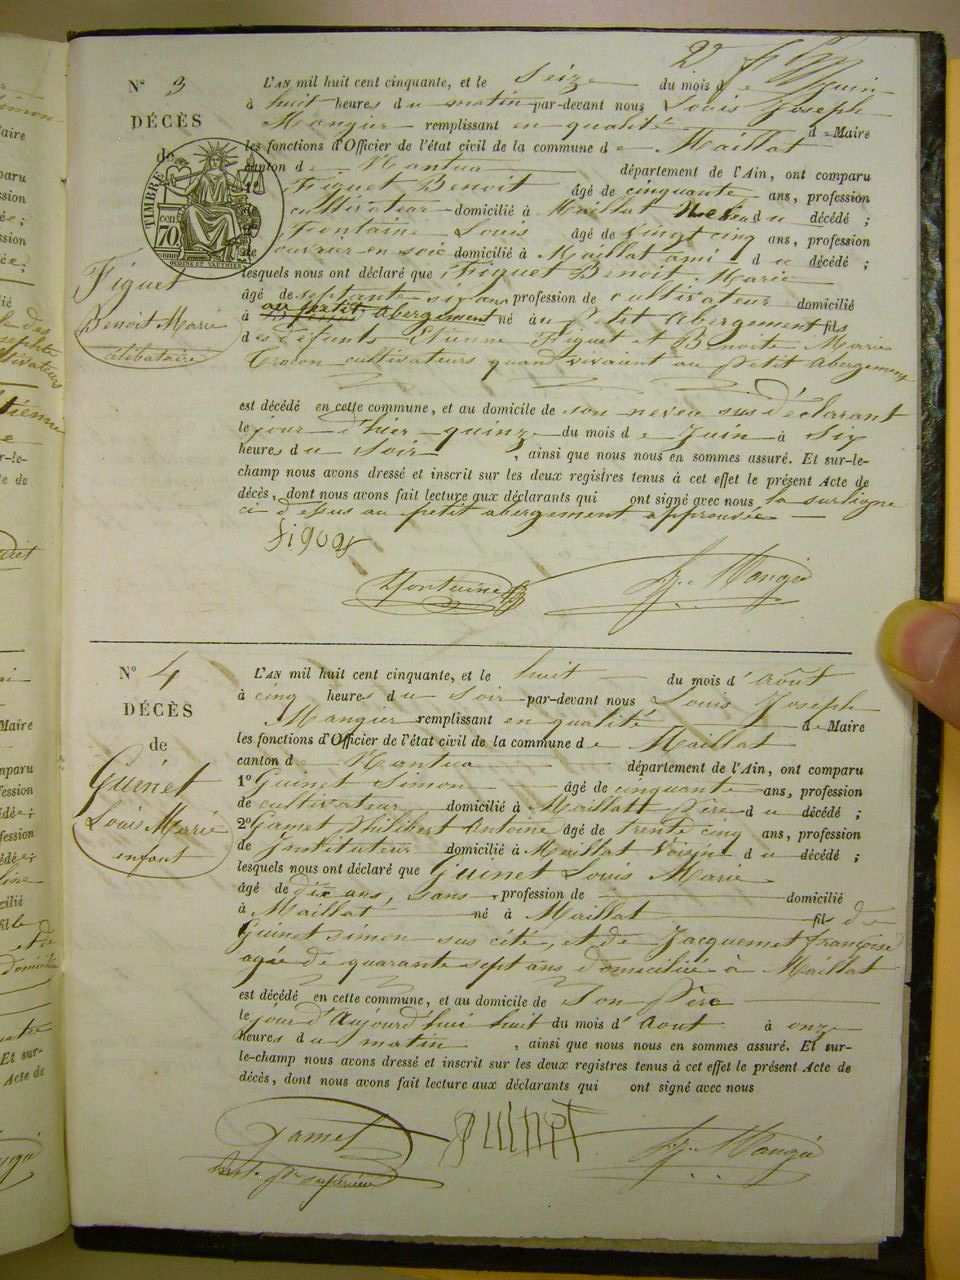 N° 3
DÉCÈS
de
TIMBRE
70
Figuet
Benoit Marie
célibataire
L'AN mil huit cent cinquante, et le Seize du mois de Juin
à huit heures du matin par-devant nous Louis Joseph
Mangier remplissant en qualité de Maire
les fonctions d'Officier de l'état civil de la commune de Maillat
canton de Nantua département de l'Ain, ont comparu
1° Figuet Benoit âgé de cinquante ans, profession
cultivateur domicilié à Maillat Neveu du décédé ;
2° Fontaine Louis âgé de vingt cinq ans, profession
de ouvrier en soie domicilié à Maillat ami du décédé ;
lesquels nous ont déclaré que Figuet Benoit Marie
âgé de septante six ans profession de cultivateur domicilié
à au petit Abergement né au Petit Abergement fils
des défunts Etienne Figuet et Benoite Marie
cultivateurs quand vivaient au Petit Abergement
est décédé en cette commune, et au domicile de son neveu sus déclarant
le jour d'hier quinze du mois de Juin à Six
heures du Soir, ainsi que nous nous en sommes assuré. Et sur-le-
champ nous avons dressé et inscrit sur les deux registres tenus à cet effet le présent Acte de
décès, dont nous avons fait lecture aux déclarants qui ont signé avec nous la surligne
ci dessus au petit abergement approuvée
figuet
Lfontaine
Ljh Mangié
N° 4
DÉCÈS
de
Guinet
Louis Marie
enfant
L'AN mil huit cent cinquante, et le huit du mois d'Août
à cinq heures du Soir par-devant nous Louis Joseph
Mangier remplissant en qualité de Maire
les fonctions d'Officier de l'état civil de la commune de Maillat
canton de Nantua département de l'Ain, ont comparu
1° Guinet Simon âgé de cinquante ans, profession
de cultivateur domicilié à Maillat Père du décédé ;
2° Gamet Philibert Antoine âgé de trente cinq ans, profession
de Instituteur domicilié à Maillat Voisin du décédé ;
lesquels nous ont déclaré que Guinet Louis Marie
âgé de dix ans, sans profession de domicilié
à Maillat né à Maillat fils de
Guinet simon sus cité, et de Jacquemet françoise
agée de quarante sept ans domiciliée à Maillat
est décédé en cette commune, et au domicile de Son Père
le jour d'Aujourd'hui huit du mois d'Aout à onze
heures du matin, ainsi que nous nous en sommes assuré. Et sur-
le-champ nous avons dressé et inscrit sur les deux registres tenus à cet effet le présent Acte de
décès, dont nous avons fait lecture aux déclarants qui ont signé avec nous
Gamet
supérieur
guinet
Ljh Mangié